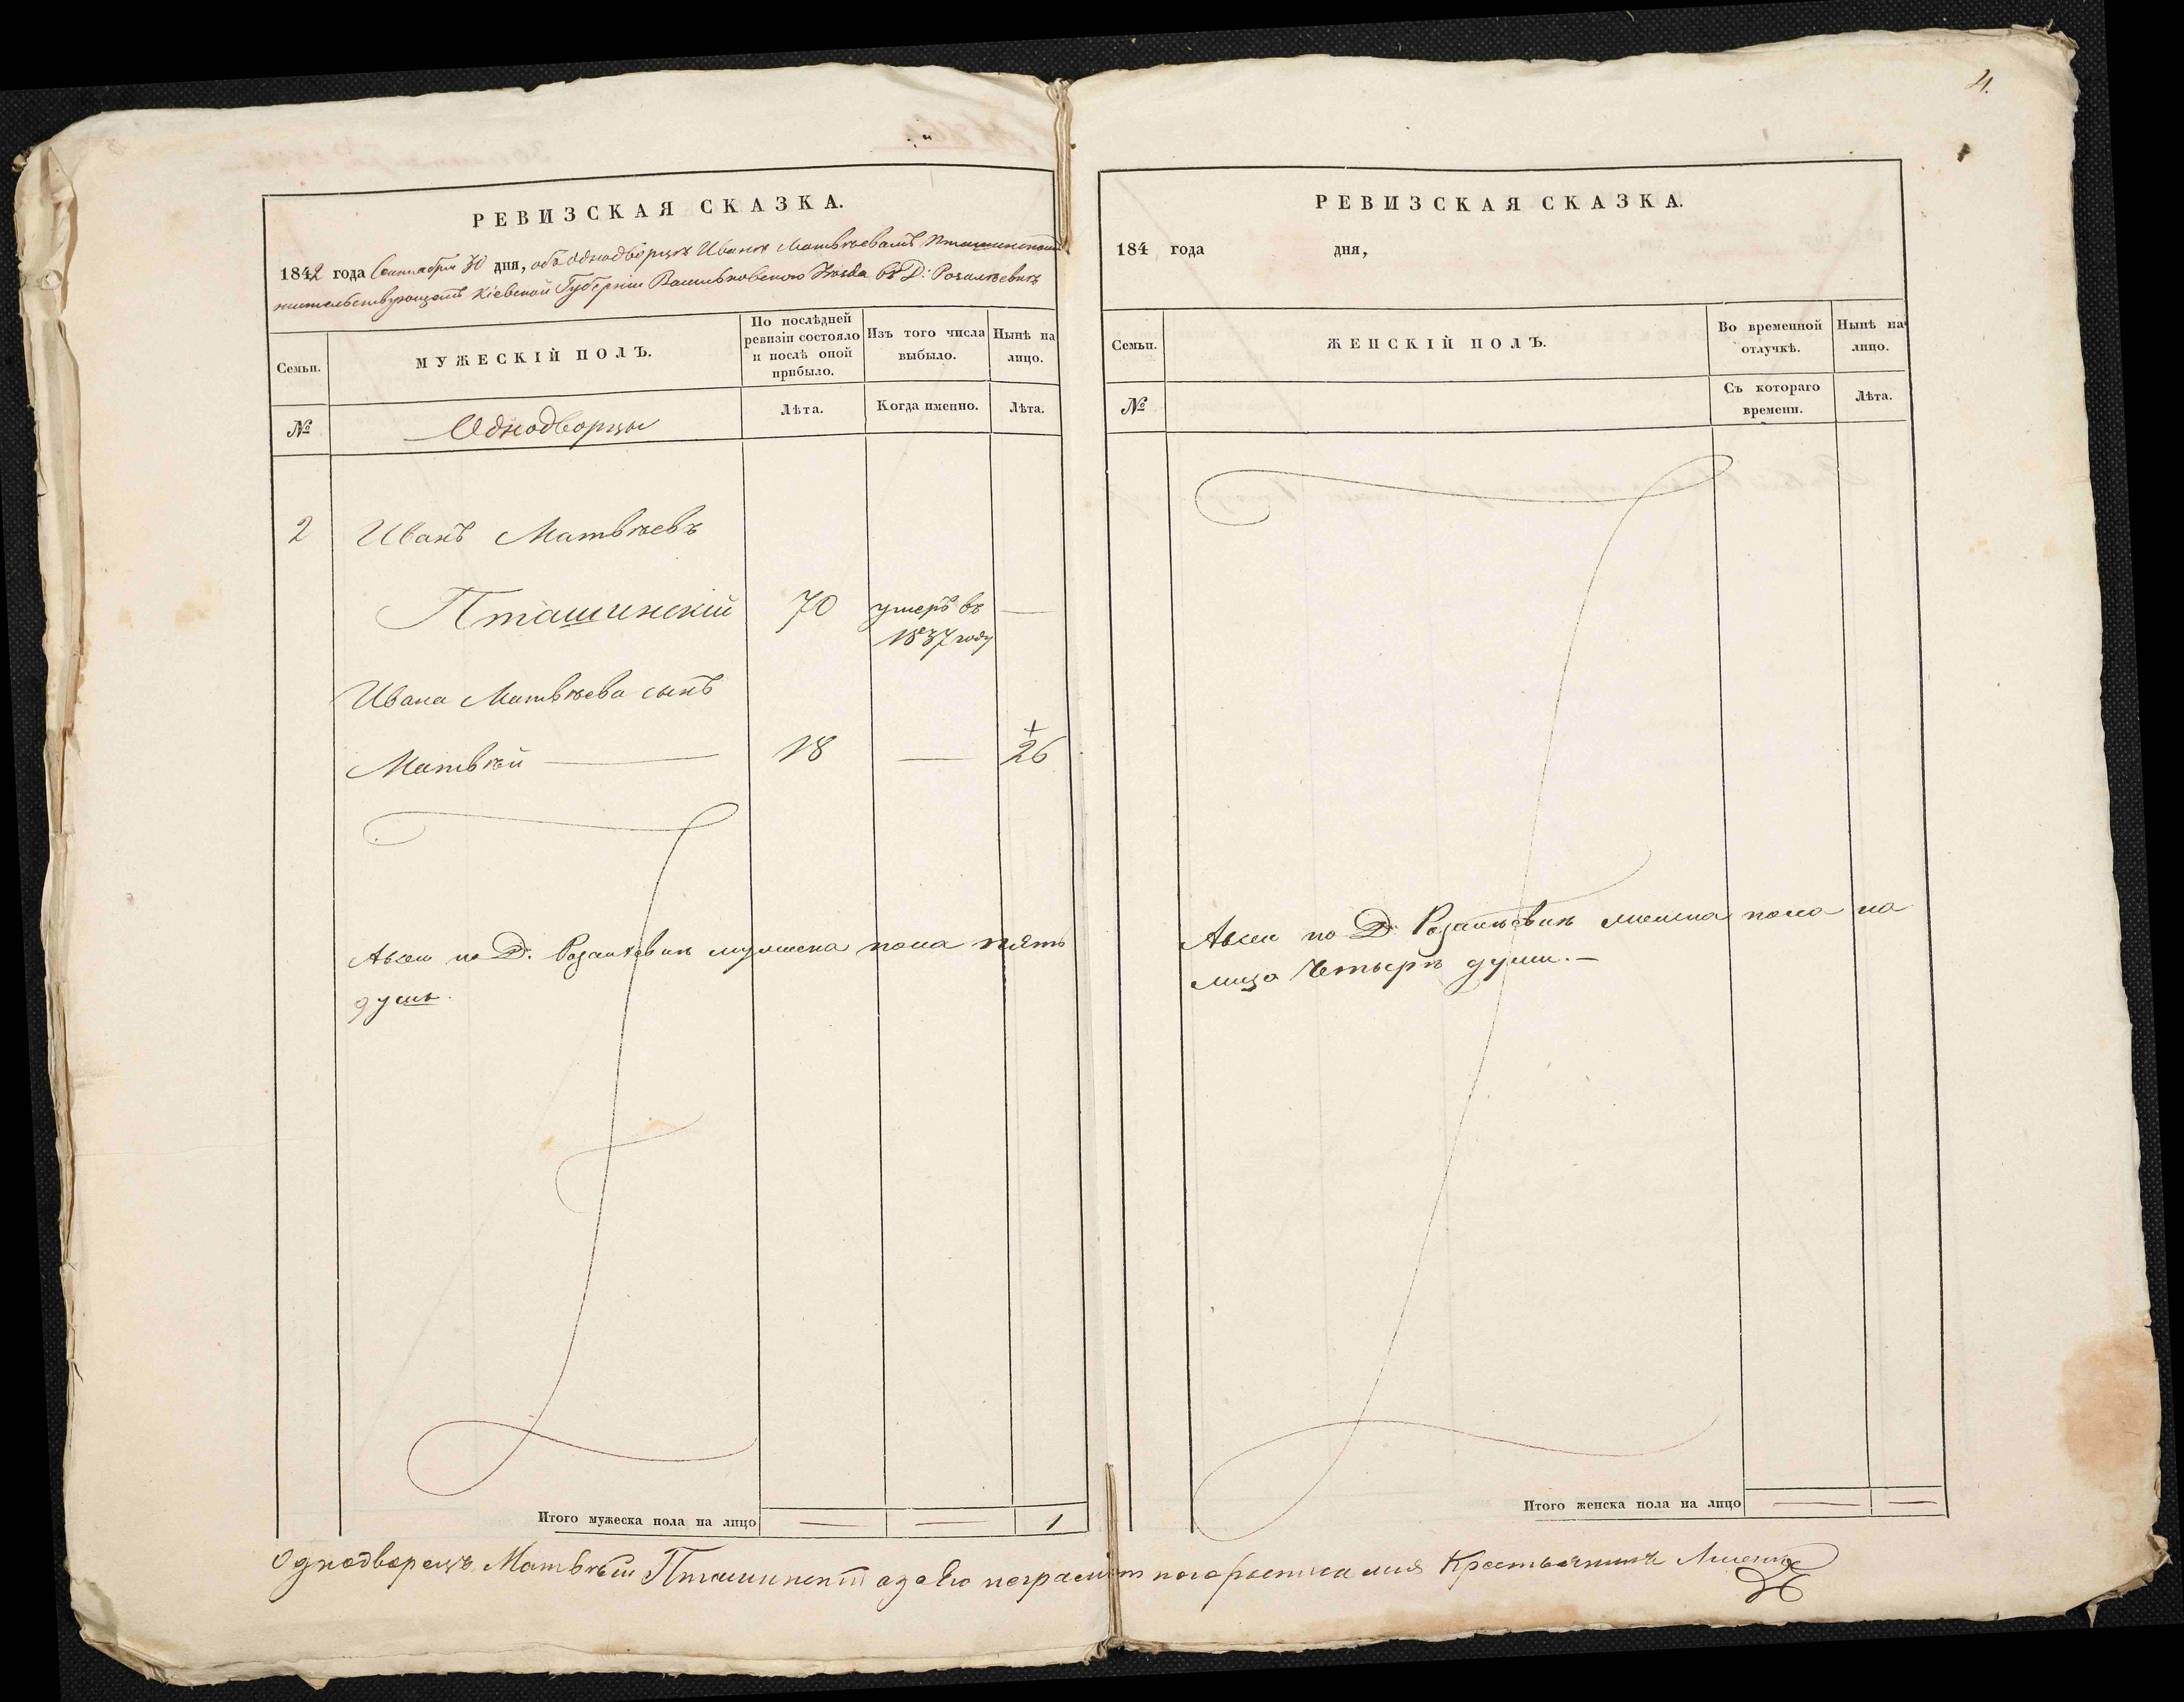 4.
РЕВИЗСКАЯ СКАЗКА.
1842 года Сентября 30 дня, объ однодворцѣ Иванѣ Матвѣевомъ Пташинскомъ
жительствующемъ Кіевской Губерніи Васильковскаго Уѣзда въ Д:
Семьи.
МУЖЕСКІЙ ПОЛЪ.
По послѣдней ревизіи состояло и послѣ оной прибыло.
Изъ того числа выбыло.
Нынѣ на лицо.
№
Однодворцы
Лѣта.
Когда именно.
Лѣта.
2 Иванъ Матвѣевъ
Пташинскій 70 умеръ въ —
1837 году
Ивана Матвѣева сынъ
Матвѣй — 18 — + 26
А всего по Д. мужеска пола пять
душъ.
Итого мужеска пола на лицо — — 1
РЕВИЗСКАЯ СКАЗКА.
184 года дня,
Семьи.
ЖЕНСКІЙ ПОЛЪ.
Во временной отлучкѣ.
Нынѣ на лицо.
№
Съ котораго времени.
Лѣта.
А всего по Д. женска пола на
лицо четыре души. —
Итого женска пола на лицо — —
Однодворецъ Матвѣй Пташинскій а за его неграмотнаго росписался Крестьянинъ